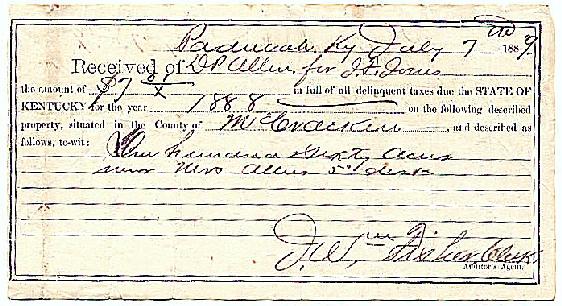 Paducah Ky July 7th 1889
Received of D P Allen for J. L. Jones
the amount of $7 in full of all delinquent taxes due the STATE OF
KENTUCKY for the year 1888 on the following described
property, situated in the County of McCracken, and described as
follows, to-wit: One hundred & sixty acres
near Allens 5" dist
J. Wm Fisher Clerk,
Auditor's Agent.